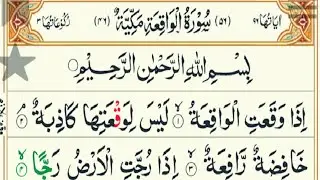 اٰیَاتُهَا ٩٦ (٥٦) سُوْرَةُ الْوَاقِعَةِ مَكِّیَّةٌ (٤٦) رُكُوْعَاتُهَا ٣
بِسْمِ اللّٰهِ الرَّحْمٰنِ الرَّحِیْمِ
اِذَا وَقَعَتِ الْوَاقِعَةُ ۙ ١ لَیْسَ لِوَقْعَتِهَا كَاذِبَةٌ ۘ ٢
خَافِضَةٌ رَّافِعَةٌ ۙ ٣ اِذَا رُجَّتِ الْاَرْضُ رَجًّا ۙ ٤